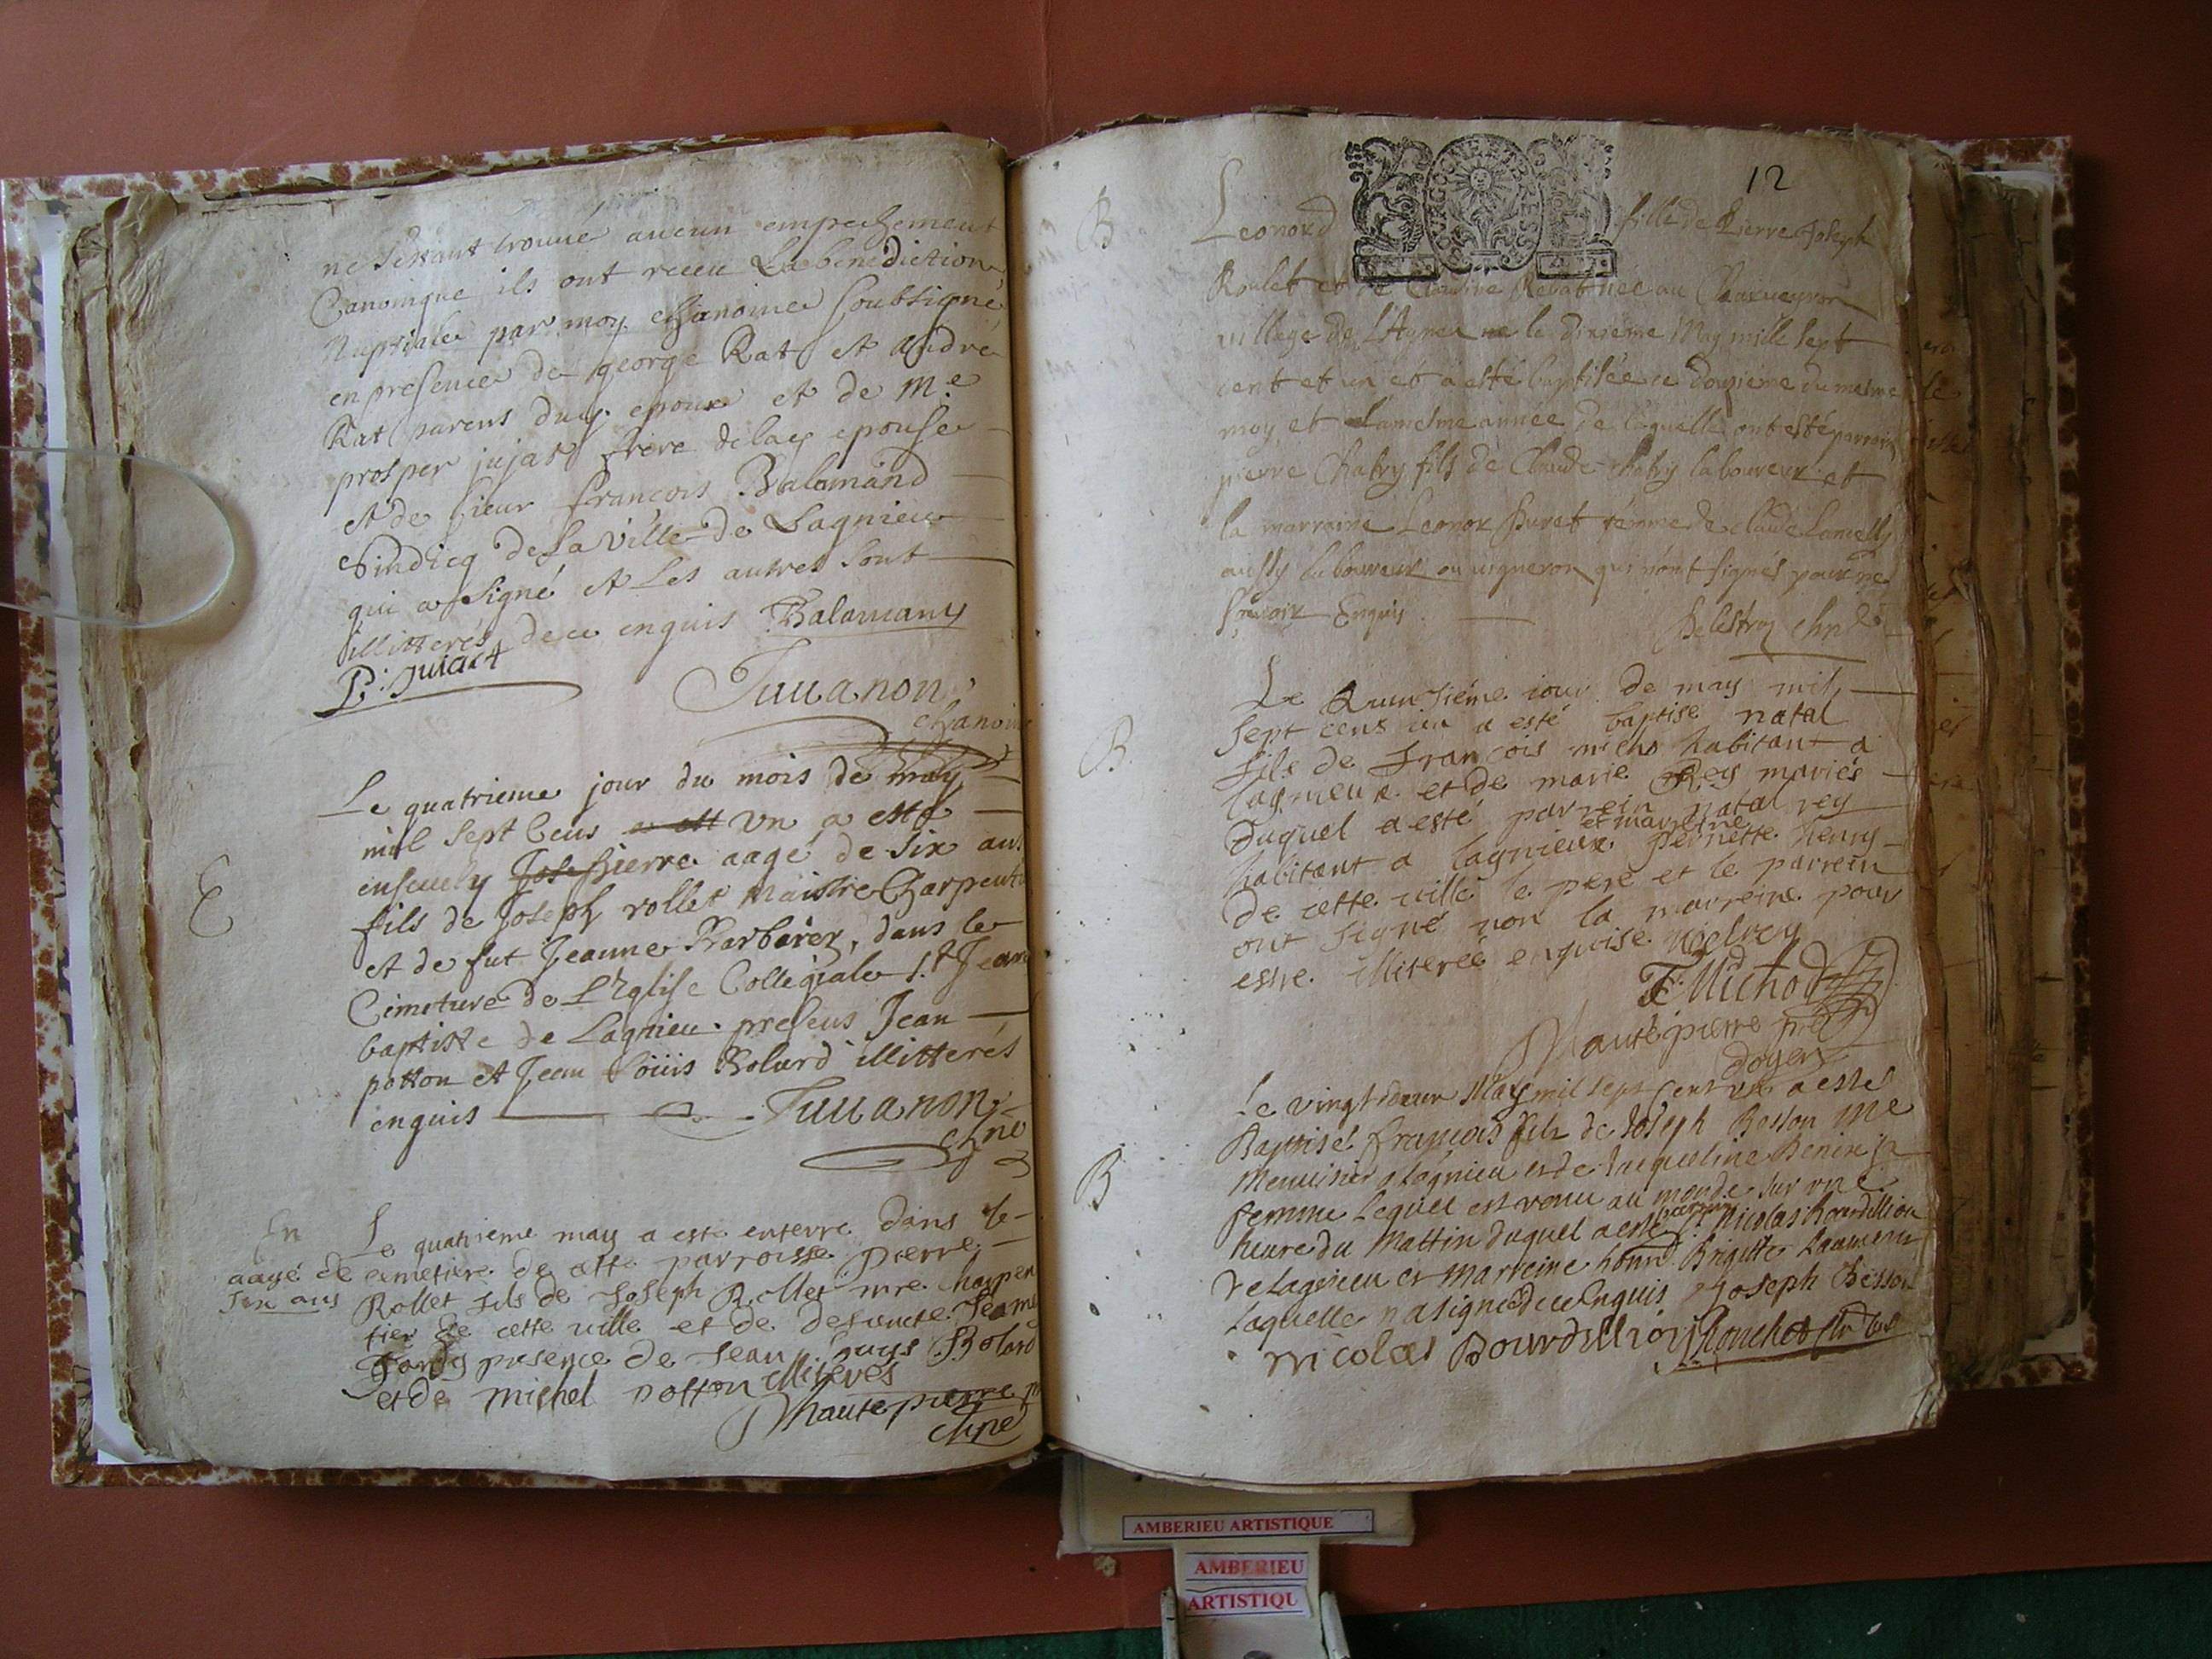 ne s'estant trouvé aucun empechement
Canonique ils ont receu La benediction
Nuptiale par moy chanoine soubsigné
en presence de george Rat et André
Rat parens dud. epoux et de M.e
prosper jujat frere de lad. epouse
et de sieur françois Balamand
Sindicq de La Ville de Lagnieu
qui a signé et Les autres sont
illitterés de ce enquis Balamand
P. Juiact
Juuanon
chanoine
Le quatrieme jour du mois de may
mil sept Cens un a esté
ensevely pierre aagé de six ans
fils de Joseph rollet Maistre Charpentier
et de fut Jeanne Barbérez, dans le
Cimeture de L'Eglise Collegiale S.t Jean
baptiste de Lagnieu. presens Jean
potton et Jean Loüis Bolard illitterés
enquis Juuanon
chne
E
En
aagé de
six ans
Le quatrieme may a esté enterré dans le
cemetiere de cette parroisse pierre
Rollet fils de Joseph Rollet mre charpen
tier de cette ville et de defuncte Jeanne
presence de Jean Louys Bolard
et de michel potton illiterés
hautepierre
chne
12
B
Leonord fille de Pierre Joseph
Roulet et de Claudine Rebat née au Charveyron
village de le dixième May mille sept
cent et un et a esté baptisée le douzieme du mesme
moy et la mesme année de laquelle ont esté parrain
pierre Chatry fils de Claude Chatry laboureur et
la marraine Leonor Puret femme de Claude
aussy laboureur ou vigneron qui n'ont signés pour ne
sçavoir Enquis
Delestroz chne
B
Le quinsiéme iour de may mil
sept cens un a esté baptisé natal
fils de François micho habitant a
lagnieux et de marie Rey mariés
Duquel a esté parrein natal rey
et marreine
habitant a lagnieux pernette henry
de cette ville le pere et le parrein
ont signé non la marreine pour
estre illiterée enquise. N. rey
F. Michod
hautepierre pre
doyen
B
Le vingt deux May mil sept cent un a esté
Baptisé françois fils de Joseph Besson me
Menuisier a lagnieu et de Jacqueline Benin sa
femme Lequel est venu au monde sur une
heure du Mattin duquel a esté parrein Sr nicolas bourdillion
de Lagnieu et Marreine honn. Brigitte
Laquelle n'a signé de ce Enquis Joseph Besson
nicolas Bourdillion
AMBERIEU ARTISTIQUE
AMBERIEU
ARTISTIQU